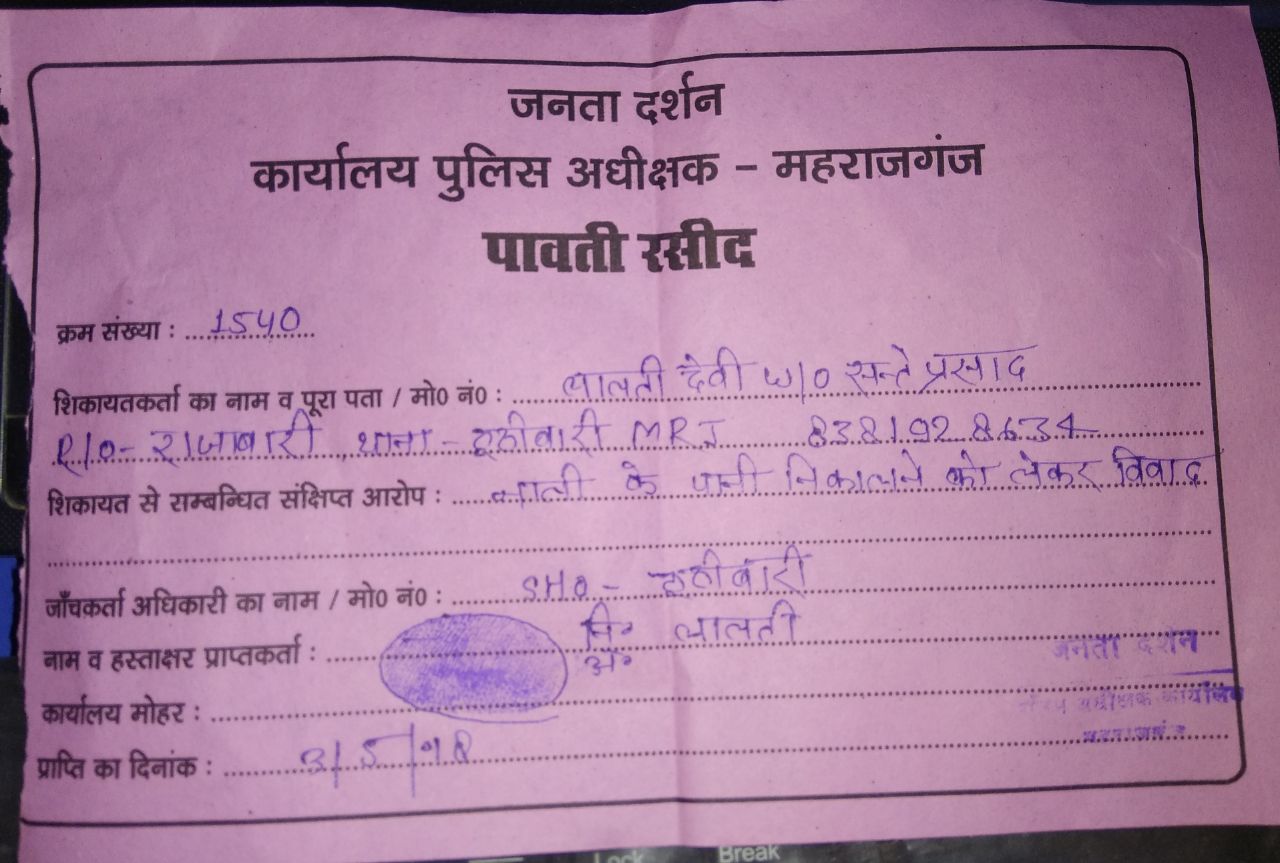 जनता दर्शन
कार्यालय पुलिस अधीक्षक - महराजगंज
पावती रसीद
क्रम संख्या : 1540
शिकायतकर्ता का नाम व पूरा पता / मो0 नं0 : लालती देवी W/O सन्ते प्रसाद
R/O- राजाबारी, थाना - ठूठीबारी MRJ 8381928634
शिकायत से सम्बन्धित संक्षिप्त आरोप : नाली के पानी निकालने को लेकर विवाद
जाँचकर्ता अधिकारी का नाम / मो0 नं0 : SHO - ठूठीबारी
नाम व हस्ताक्षर प्राप्तकर्ता : नि॰ लालती
अं॰
जनता दर्शन
कार्यालय मोहर : अधीक्षक कार्यालय
प्राप्ति का दिनांक : 3/5/18
Lock Break